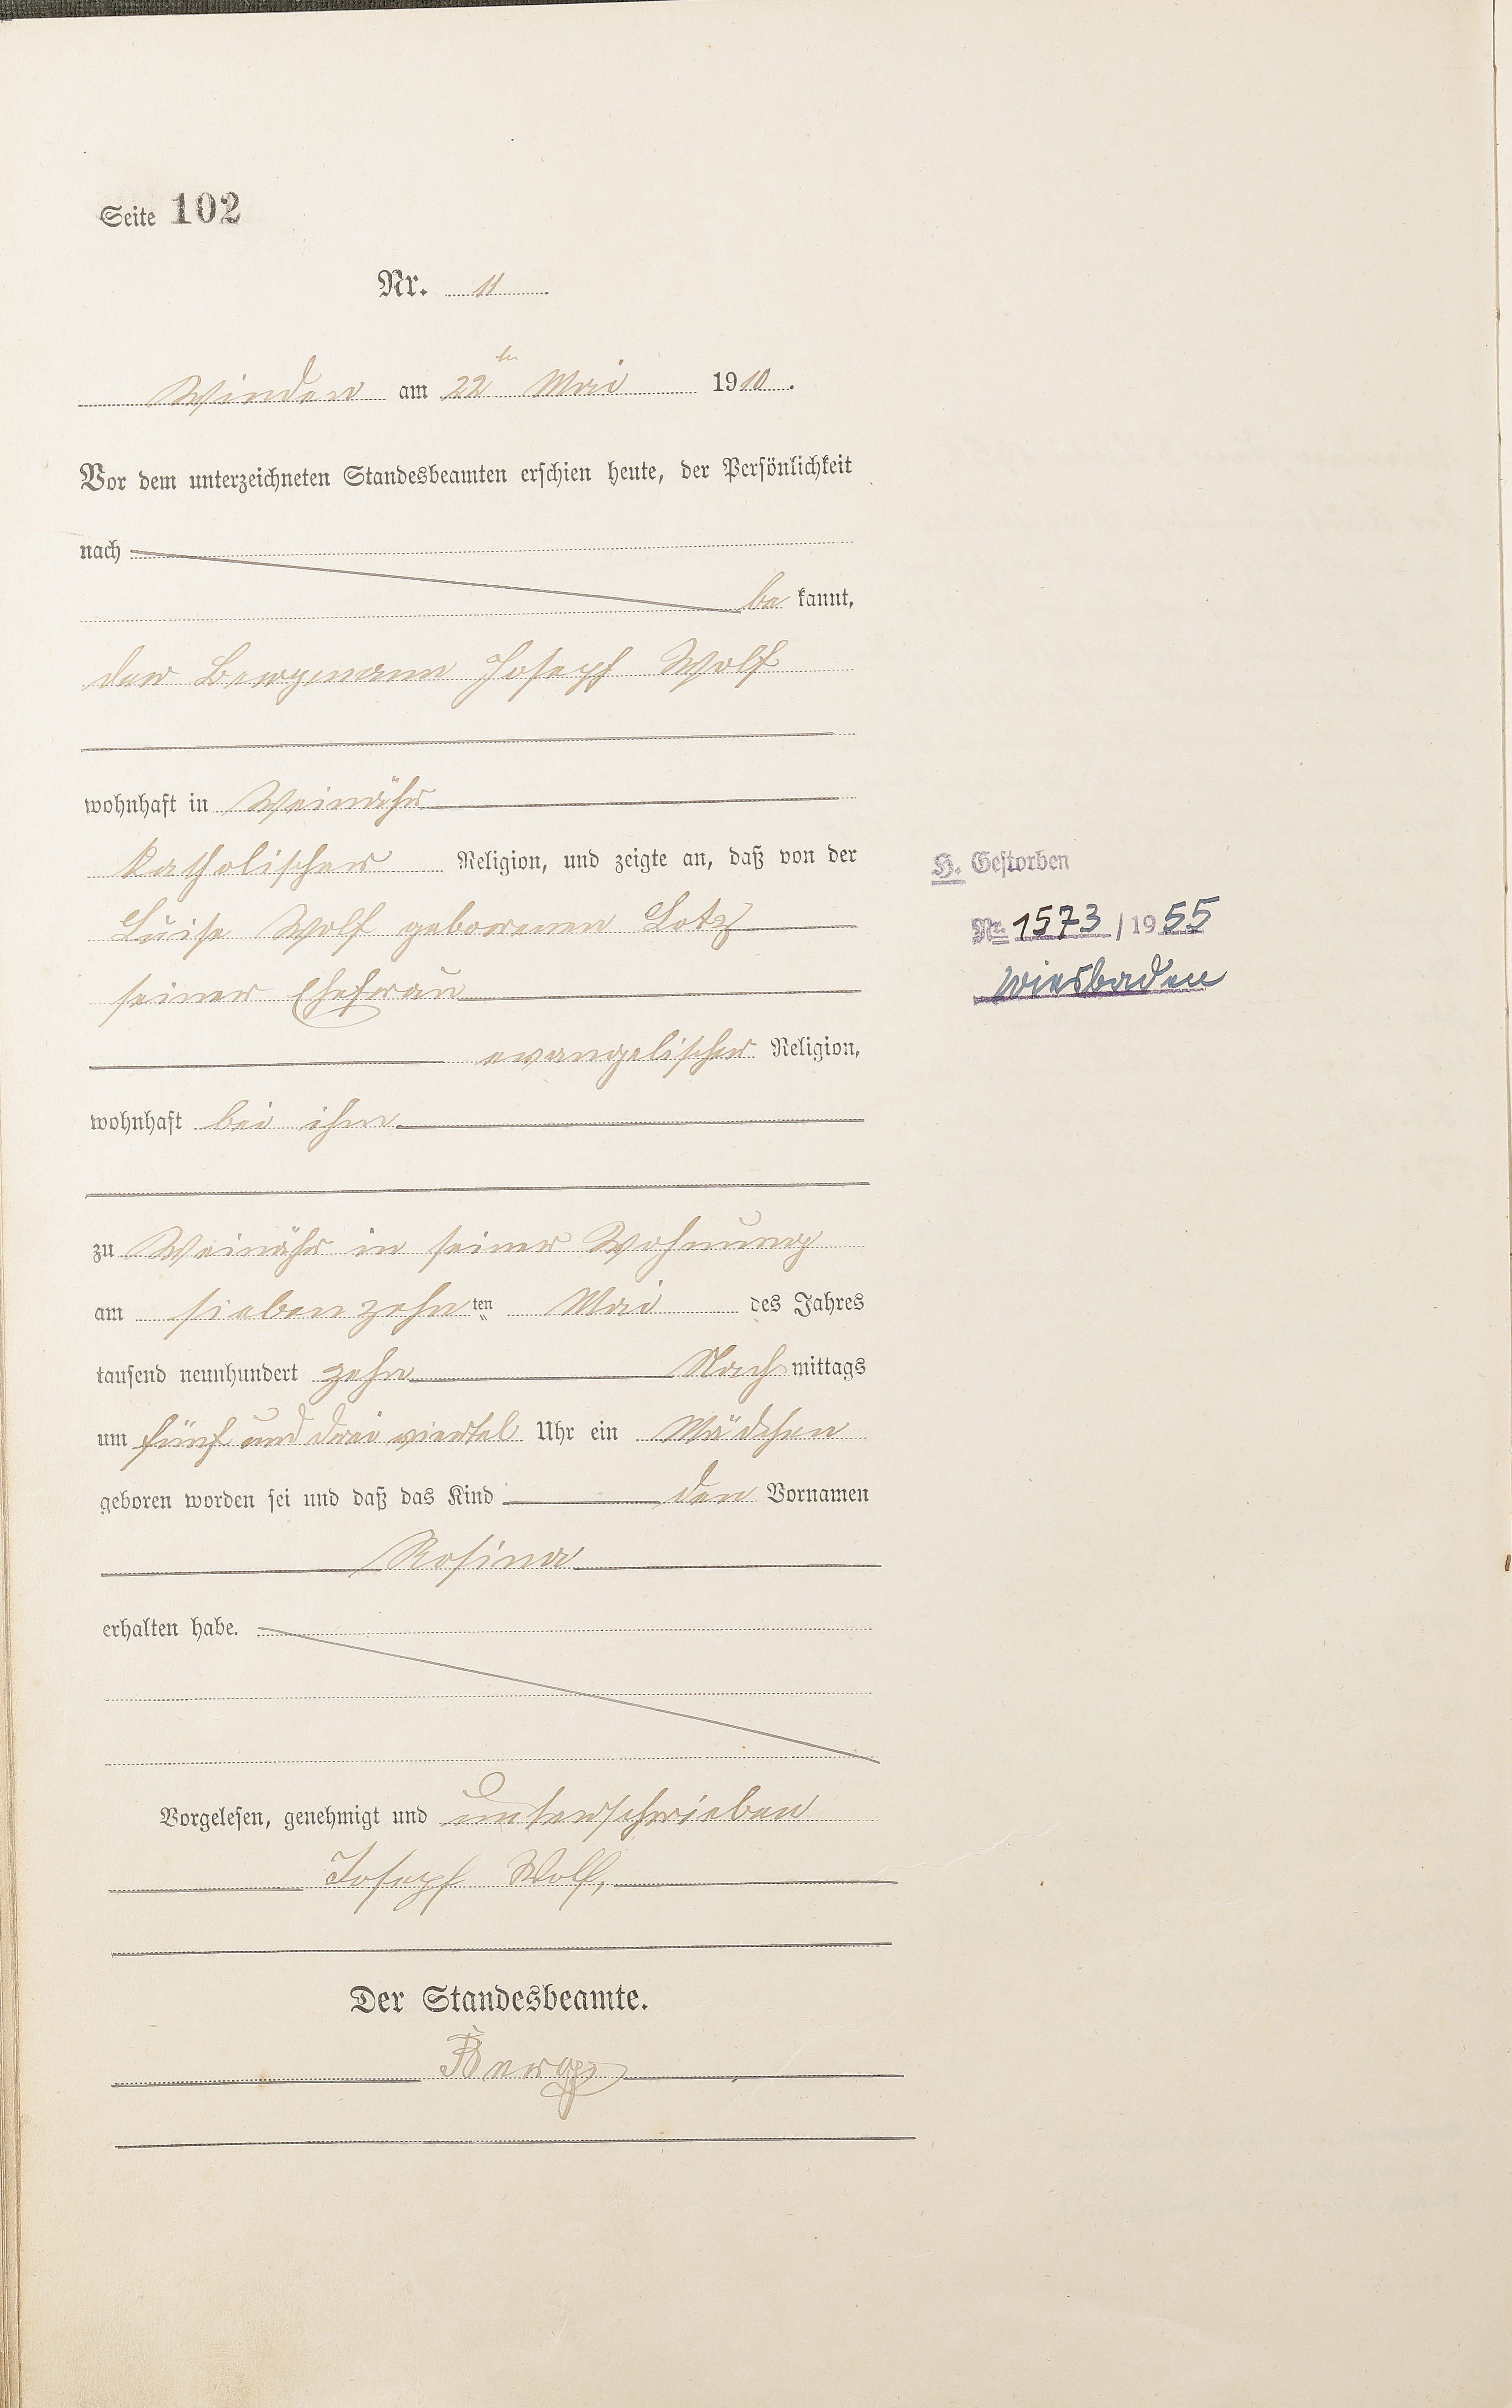 Seite 102
Nr. 11
Winden am 22ten Mai 1910.
Vor dem unterzeichneten Standesbeamten erschien heute, der Persönlichkeit
nach
be kannt,
der Bergmann Joseph Wolf
wohnhaft in Weinähr
katholischer Religion, und zeigte an, daß von der
Luise Wolf geborenen Lotz
seiner Ehefrau
evangelischer Religion,
wohnhaft bei ihm
zu Weinähr in seiner Wohnung
am siebenzehn ten Mai des Jahres
tausend neunhundert zehn Nach mittags
um fünf und drei viertel Uhr ein Mädchen
geboren worden sei und daß das Kind den Vornamen
Rosina
erhalten habe.
Vorgelesen, genehmigt und unterschrieben
Joseph Wolf,
Der Standesbeamte.
Berg
H. Gestorben
Nr. 1573/1955
Wiesbaden